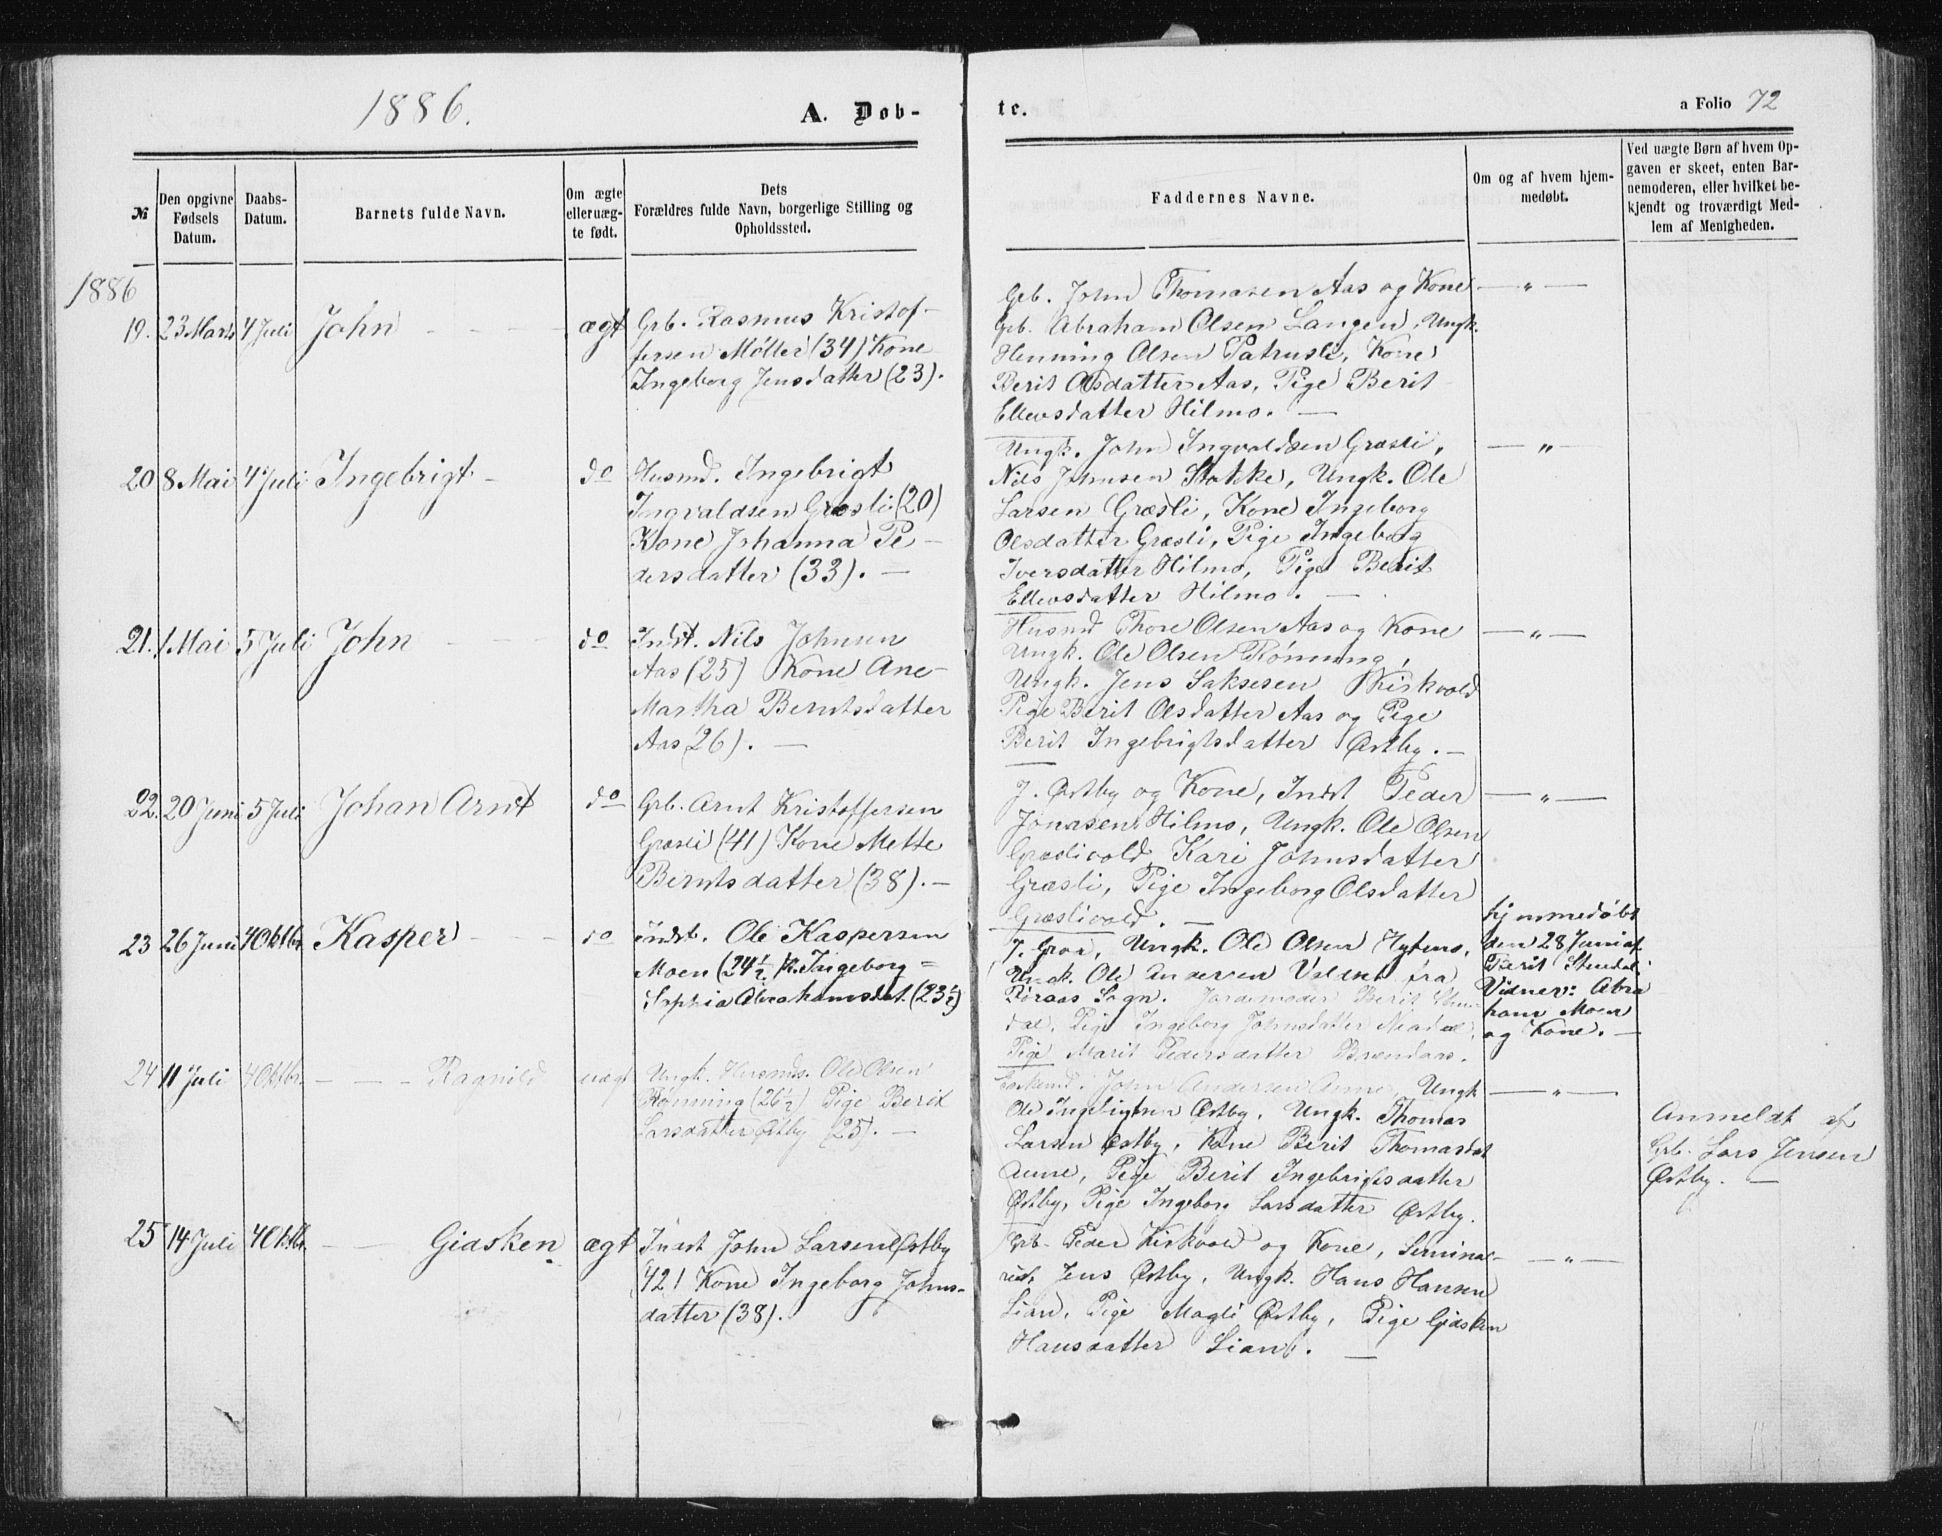 1886.
A. Døb-
te.
a Folio 72
№
Den opgivne
Fødsels
Datum.
Daabs-
Datum.
Barnets fulde Navn.
Om ægte
eller uæg-
te født.
Dets
Forældres fulde Navn, borgerlige Stilling og
Opholdssted.
Faddernes Navne.
Om og af hvem hjem-
medøbt.
Ved uægte Børn af hvem Op-
gaven er skeet, enten Bar-
nemoderen, eller hvilket be-
kjendt og troværdigt Med-
lem af Menigheden.
1886
19. 23 Marts 4 Juli John ægt
Grb. Rasmus Kristof-
fersen Møller (34) Kone
Ingeborg Jensdatter (23).
Grb. John Thomasen Aas og Kone — " —
Grb. Abraham Olsen Langen, Ungk.
Henning Olsen Patrusli, Kone
Berit Olsdatter Aas, Pige Berit
Ellevsdatter Hilmo. —
20 8 Mai 4 Juli Ingebrigt - do
Husmd. Ingebrigt
Ingvaldsen Græsli (20)
Kone Johanna Pe-
dersdatter (33). —
Ungk. John Ingvaldsen Græsli, — " —
Nils Johnsen Stokke, Ungk. Ole
Larsen Græsli, Kone Ingeborg
Olsdatter Græsli, Pige Ingeborg
Iversdatter Hilmo, Pige Berit
Ellevsdatter Hilmo. —
21. 1 Mai 5 Juli John - do
Indst. Nils Johnsen
Aas (25) Kone Ane-
Martha Berntsdatter
Aas (26). —
Husmd Thore Olsen Aas og Kone — " —
Ungk. Ole Olsen Rønning,
Ungk. Jens Saksesen Kirkvold
Pige Berit Olsdatter Aas og Pige
Berit Ingebrigtsdatter Østby. —
22. 20 Juni 5 Juli Johan Arnt do
Grb. Arnt Kristoffersen
Græsli (41) Kone Mette
Berntsdatter (38). —
J. Østby og Kone, Indst Peder — " —
Jonasen Hilmo, Ungk. Ole Olsen
Græslivold, Kari Johnsdatter
Græsli, Pige Ingeborg Olsdatter
Græslivold. —
23 26 Juni 4 Oktbr. Kasper - do
Indst. Ole Kaspersen
Moen (24½) K. Ingeborg =
Sophia Abrahamsdat. (23½)
J. Graa, Ungk. Ole Olsen Hytmo,
Ungk. Ole Andersen Valset fra
Røraas Sogn. Jordemoder Berit Stue-
dal, Pige Ingeborg Johnsdatter
Pige Marit Pedersdatter
hjemmedøbt
den 28 Juni af
Berit Stuedal
Vidner: Abra
ham Moen
og Kone. —
24 11 Juli 4 Oktbr. — — - Ragnild uægt
Ungk. Husmds. Ole Olsen
Rønning (26½) Pige Berit
Larsdatter Østby (25). —
John Andersen Aune, Ungk — " —
Ole Ingebrigtsen Østby, Ungk. Thomas
Larsen Østby, Kone Berit Thomasdat
Aune, Pige Berit Ingebrigtsdatter
Østby, Pige Ingeborg Larsdatter Østby.
Anmeldt af
Grb. Lars Jensen
Østby. —
25 14 Juli 4 Oktbr. — — Gidsken ægt
Indst John Larsen Østby
(42) Kone Ingeborg Johns-
datter (38).
Grb. Peder Kirkvold og Kone, Seminar- — " —
ist, Jens Østby, Ungk. Hans Hansen
Lian, Pige Magli Østby, Pige Gidsken
Hansdatter Lian. —